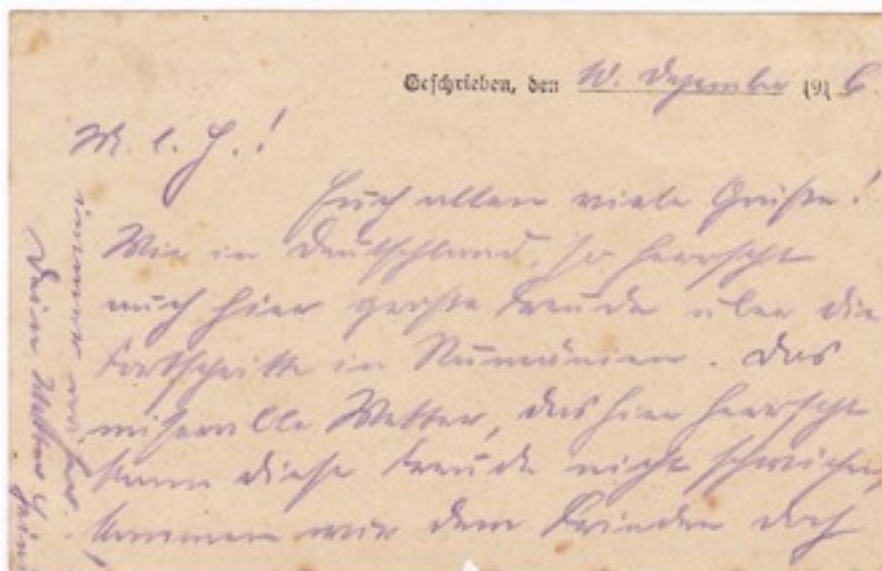 Geschrieben, den 10. Dezember 1916
M. l. H.!
Euch allen viele Grüße!
Wie in Deutschland, so herrscht
auch hier große Freude über die
Fortschritte in Rumänien. Das
miserable Wetter, das hier herrscht
kann diese Freude nicht
kommen wir dem Frieden doch
immer
Dein Vetter